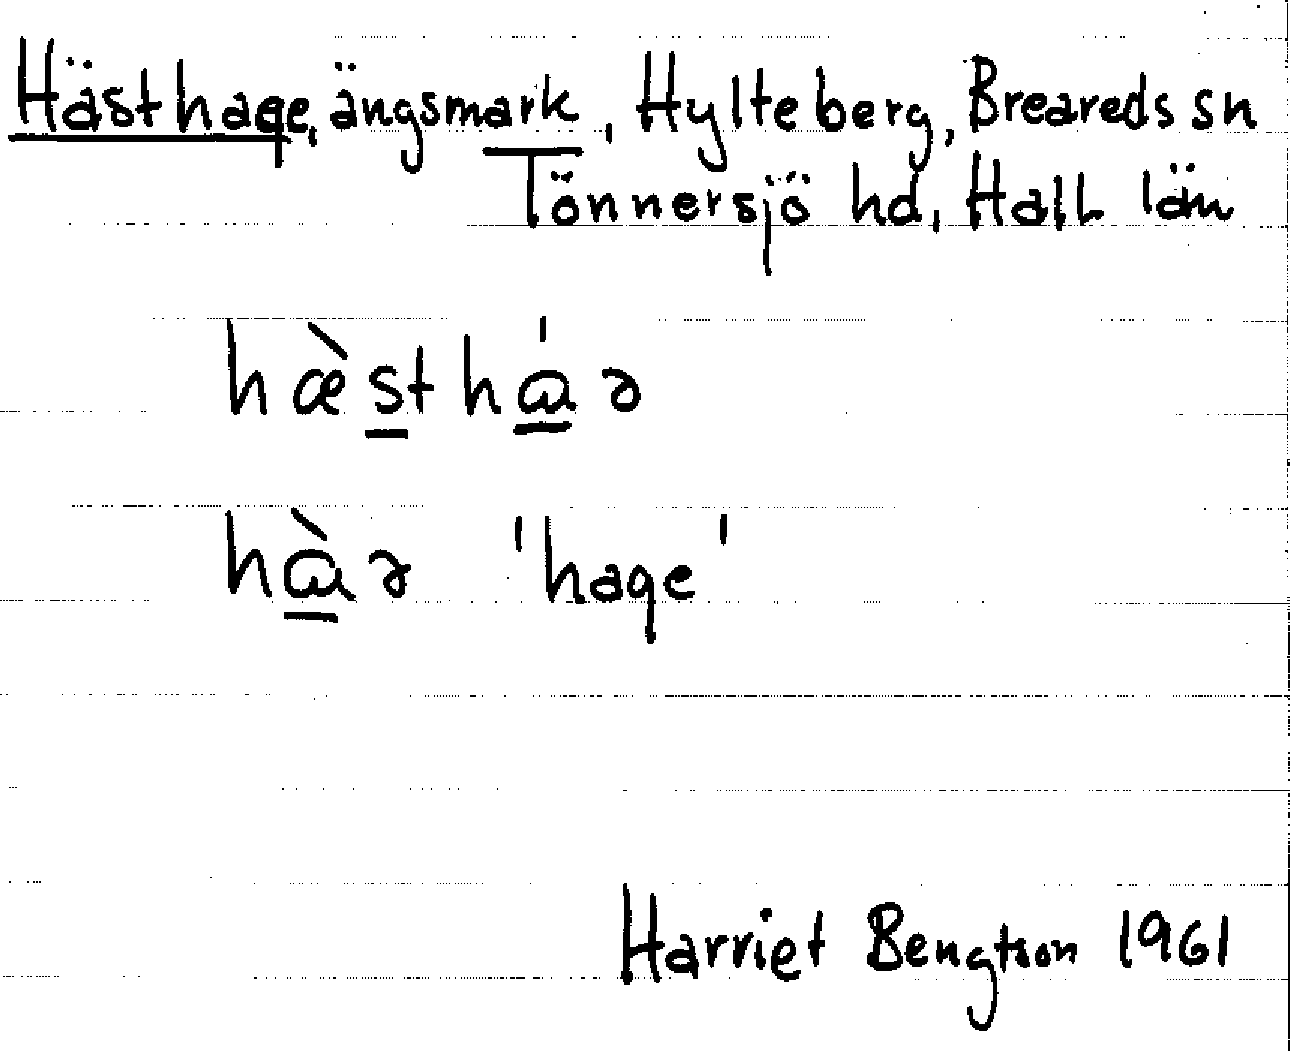 Hästhage, ängsmark, Hylteberg, Breareds sn
Tönnersjö hd, Hall. län
hæ̀sthɑ́ə
hɑ̀ə 'hage'
Harriet Bengtson 1961